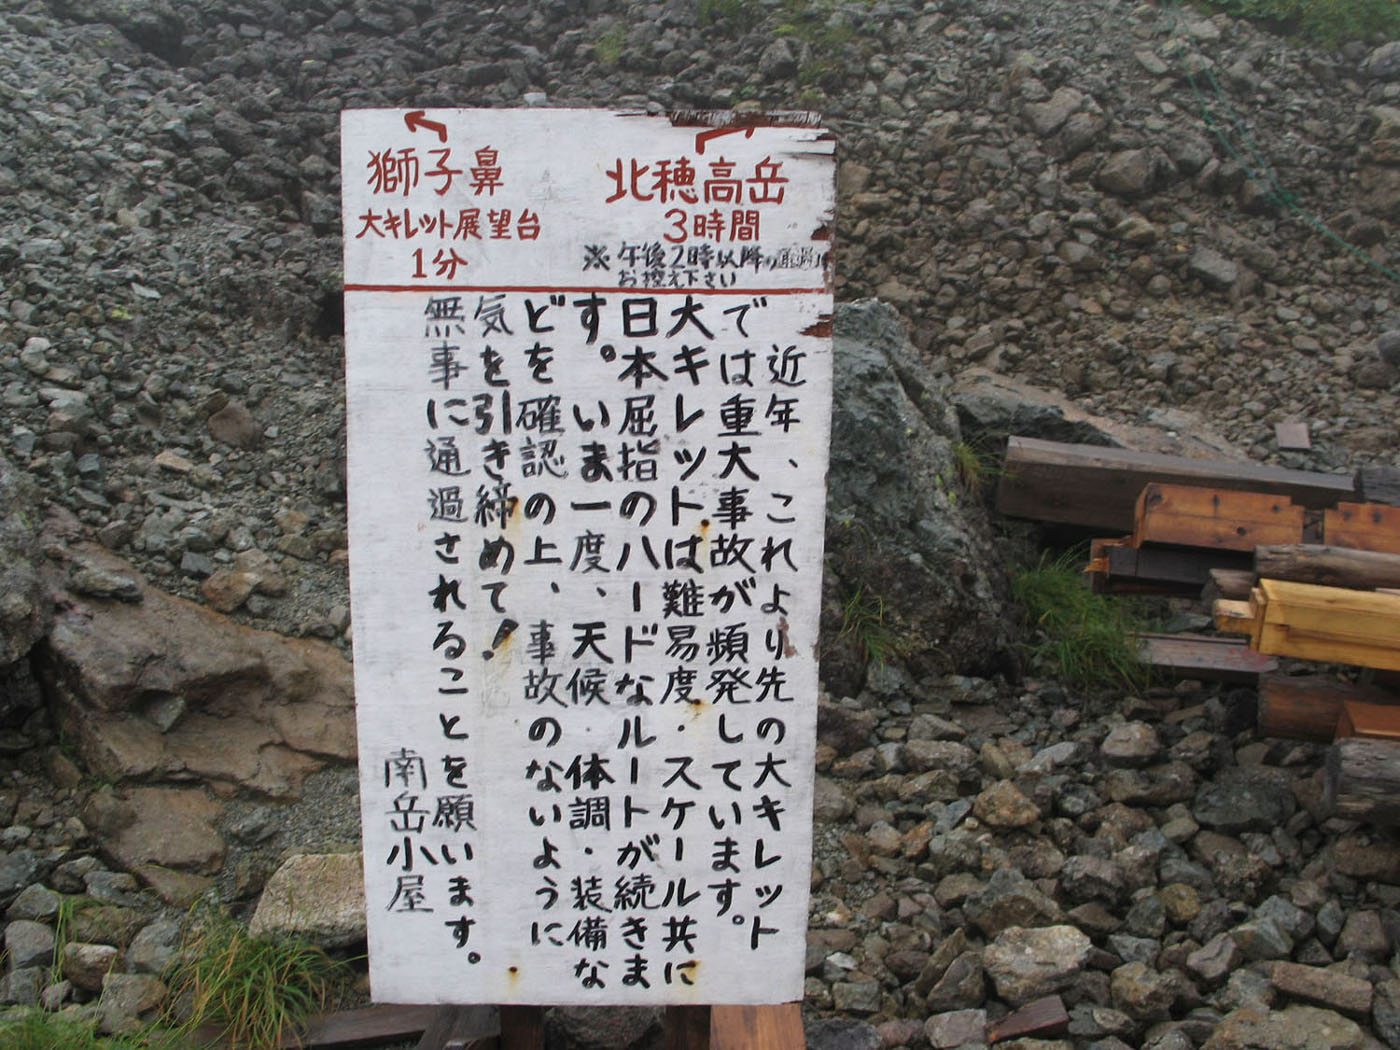 獅子鼻
大キレット展望台
1分
北穂高岳
3時間
※午後2時以降の通過は
お控え下さい
近年、これより先の大キレット
では重大事故が頻発しています。
大キレットは難易度・スケール共に
日本屈指のハードなルートが続きま
す。いま一度、天候・体調・装備な
どを確認の上、事故のないように
気を引き締めて!
無事に通過されることを願います。
南岳小屋